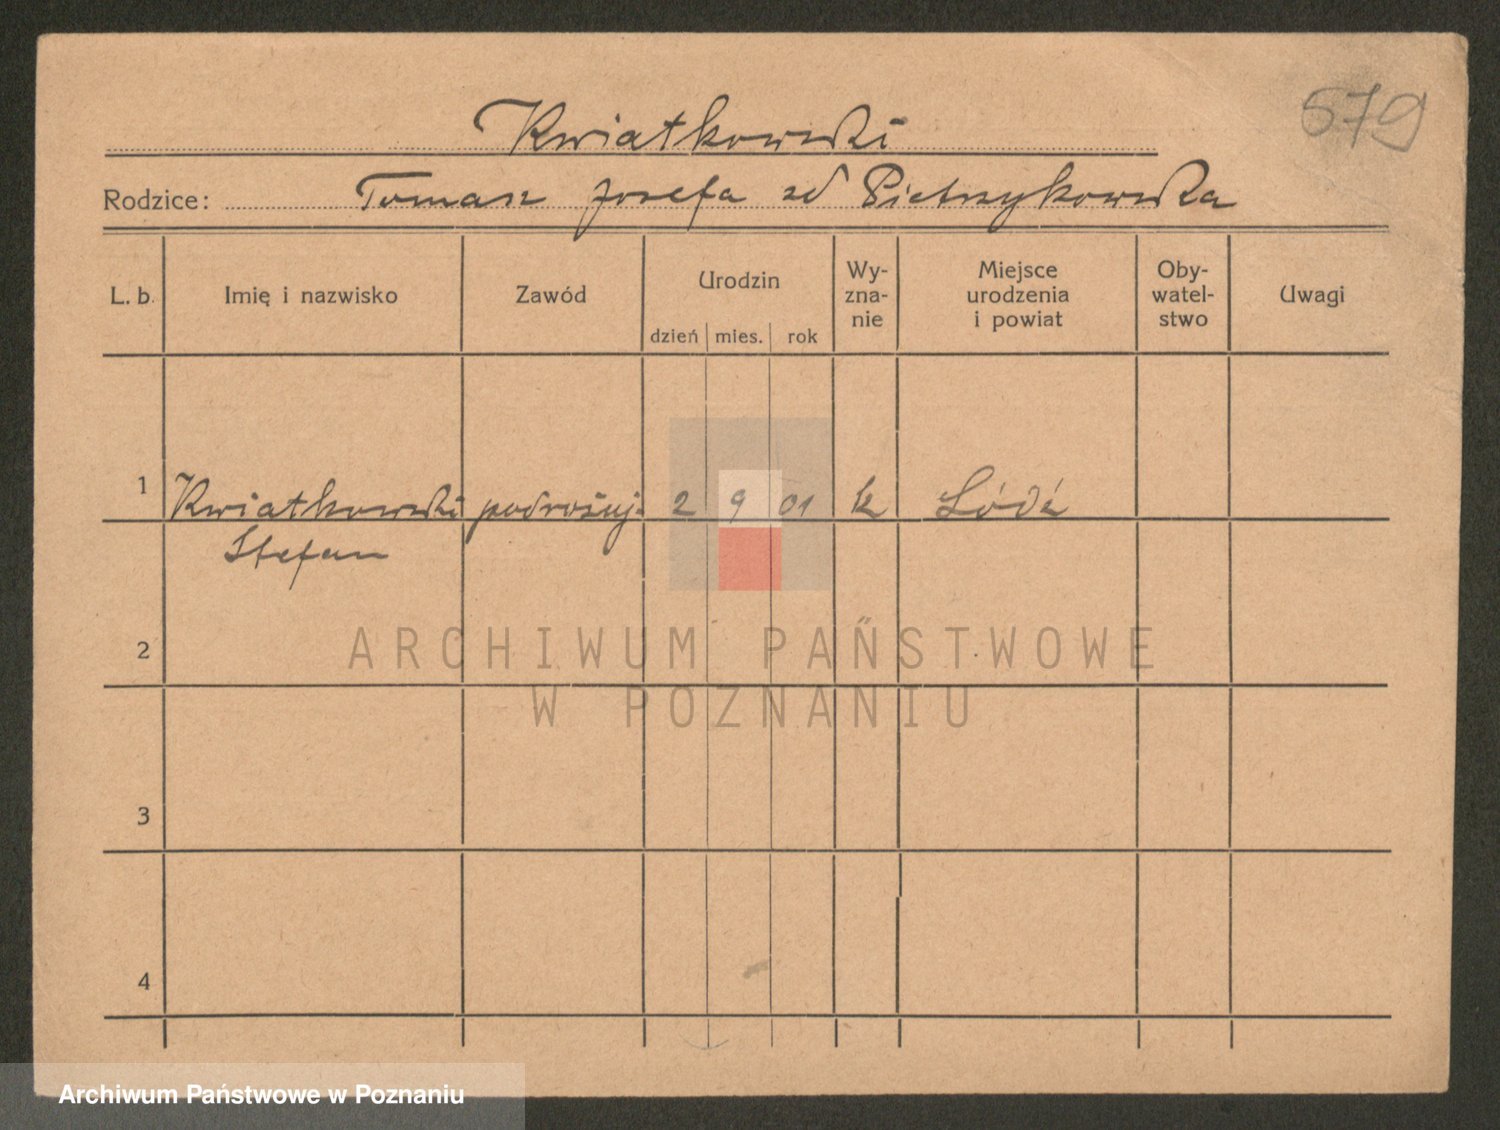 579
Kwiatkowski
Rodzice: Tomasz Josefa zd Pietrzykowska
L. b. Imię i nazwisko Zawód Urodzin dzień mies. rok Wy-zna-nie Miejsce urodzenia i powiat Oby-watel-stwo Uwagi
1 Kwiatkowski podrożuj. 2 9 01 k Łódź
Stefan
2
ARCHIWUM PAŃSTWOWE
W POZNANIU
3
4
Archiwum Państwowe w Poznaniu